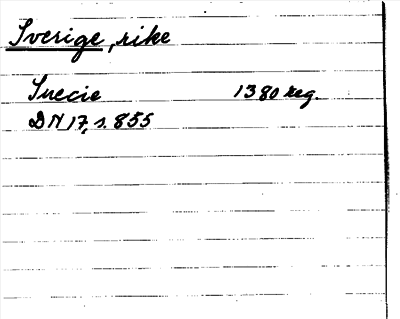 Sverige, rike
Suecie 1380 reg.
DN 17, s. 855